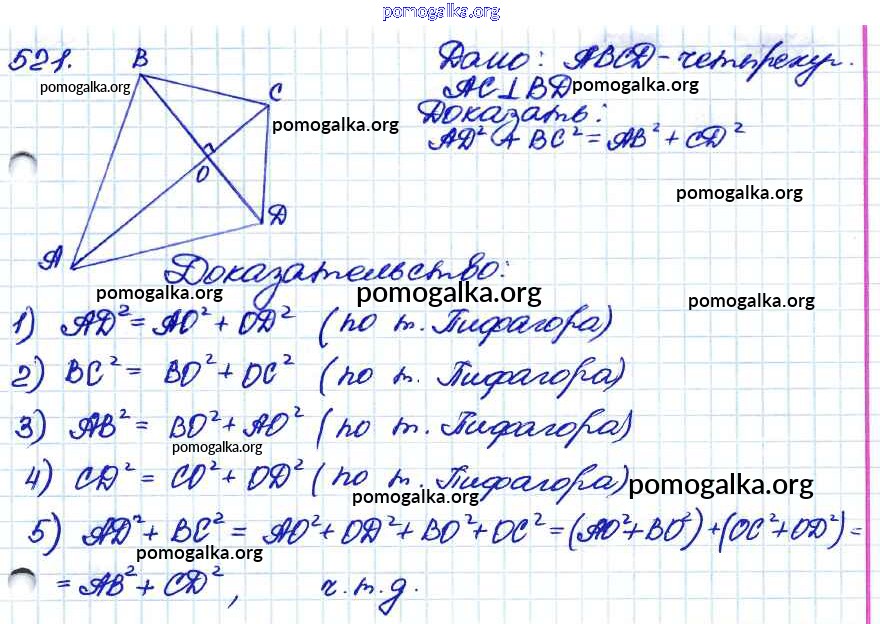 pomogalka.org
521.
B
Дано: ABCD - четырехуг.
pomogalka.org
AC⊥BD pomogalka.org
C
Доказать:
pomogalka.org
AD² + BC² = AB² + CD²
O
pomogalka.org
pomogalka.org
D
A
Доказательство:
pomogalka.org
pomogalka.org
pomogalka.org
1) AD² = AO² + OD² (по т. Пифагора)
2) BC² = BO² + OC² (по т. Пифагора)
3) AB² = BO² + AO² (по т. Пифагора)
pomogalka.org
4) CD² = CO² + OD² (по т. Пифагора)
pomogalka.org
pomogalka.org
5) AD² + BC² = AO² + OD² + BO² + OC² = (AO² + BO²) + (OC² + OD²) =
pomogalka.org
= AB² + CD², ч.т.д.